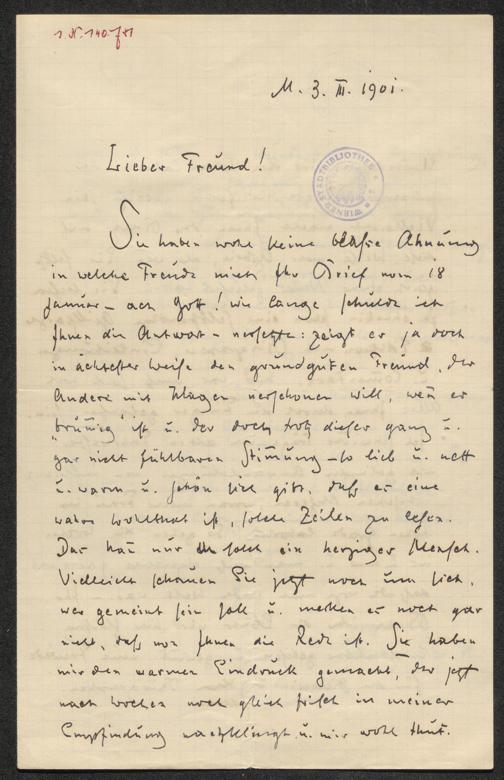 I. N. 140.781
M. 3. III. 1901.
Lieber Freund!
WIENER STADTBIBLIOTHEK
Sie haben wohl keine blasse Ahnung
in welche Freude mich Ihr Brief vom 18
Januar – ach Gott! wie lange schulde ich
Ihnen die Antwort – versetzte: zeigt er ja doch
in ächtester Weise den grundguten Freund, der
Andere mit Klagen verschonen will, wen̄ er
„brum̄ig" ist u. der doch trotz dieser ganz u.
gar nicht fühlbaren Stim̄ung – so lieb u. nett
u. warm u. schön sich gibt, daß es eine
wahre Wohlthat ist, solche Zeilen zu lesen.
Das kan̄ nur solch ein herziger Mensch.
Vielleicht schauen Sie jetzt noch um sich,
wer gemeint sein soll u. merken es noch gar
nicht, daß von Ihnen die Rede ist. Sie haben
mir den warmen Eindruck gemacht, der jetzt
nach Wochen noch gleich frisch in meiner
Empfindung nachklingt u. mir wohl thut.